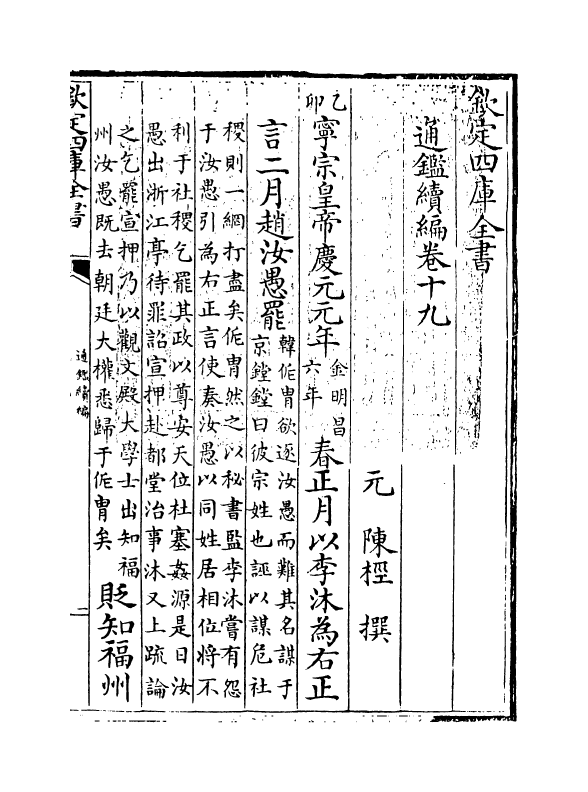 欽定四庫全書
通鑑續編卷十九
元 陳桱 撰
乙卯寧宗皇帝慶元元年金明昌六年春正月以李沐為右正
言二月趙汝愚罷韓侂胄欲逐汝愚而難其名謀于
京鏜鏜曰彼宗姓也誣以謀危社
稷則一網打盡矣侂胄然之以秘書監李沐嘗有怨
于汝愚引為右正言使奏汝愚以同姓居相位將不
利于社稷乞罷其政以尊安天位杜塞姦源是日汝
愚出浙江亭待罪詔宣押赴都堂治事沐又上疏論
之乞罷宣押乃以觀文殿大學士出知福
州汝愚既去朝廷大權悉歸于侂胄矣貶知福州
欽定四庫全書
通鑑續編
一